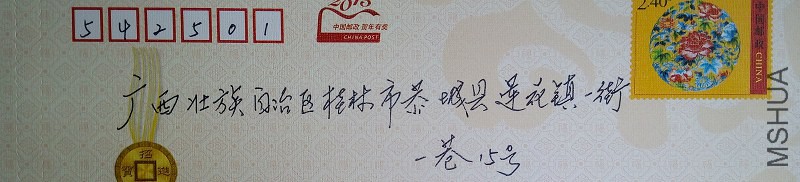 542501
2013
中国邮政 贺年有奖
CHINA POST
2.40
中国邮政
CHINA
广西壮族自治区桂林市恭城县莲花镇一街
一巷15号
招
寶
進
MSHUA